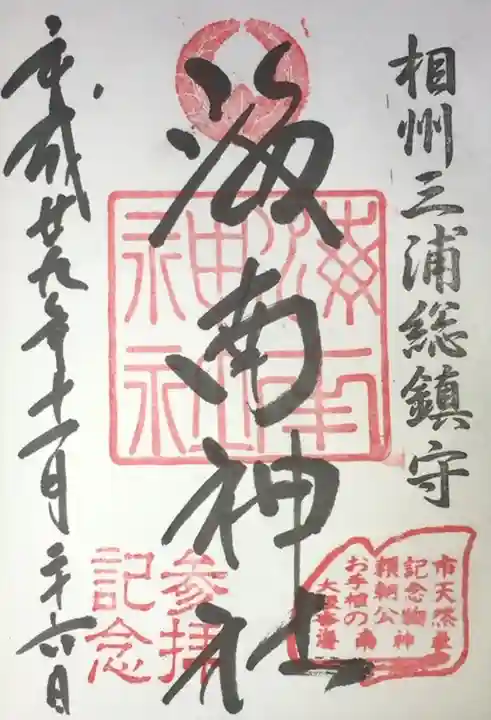 相州三浦総鎮守
海南神社
海南神社
参拝記念
市天然記念物
頼朝公
お手植の
平成廿九年十一月二十六日